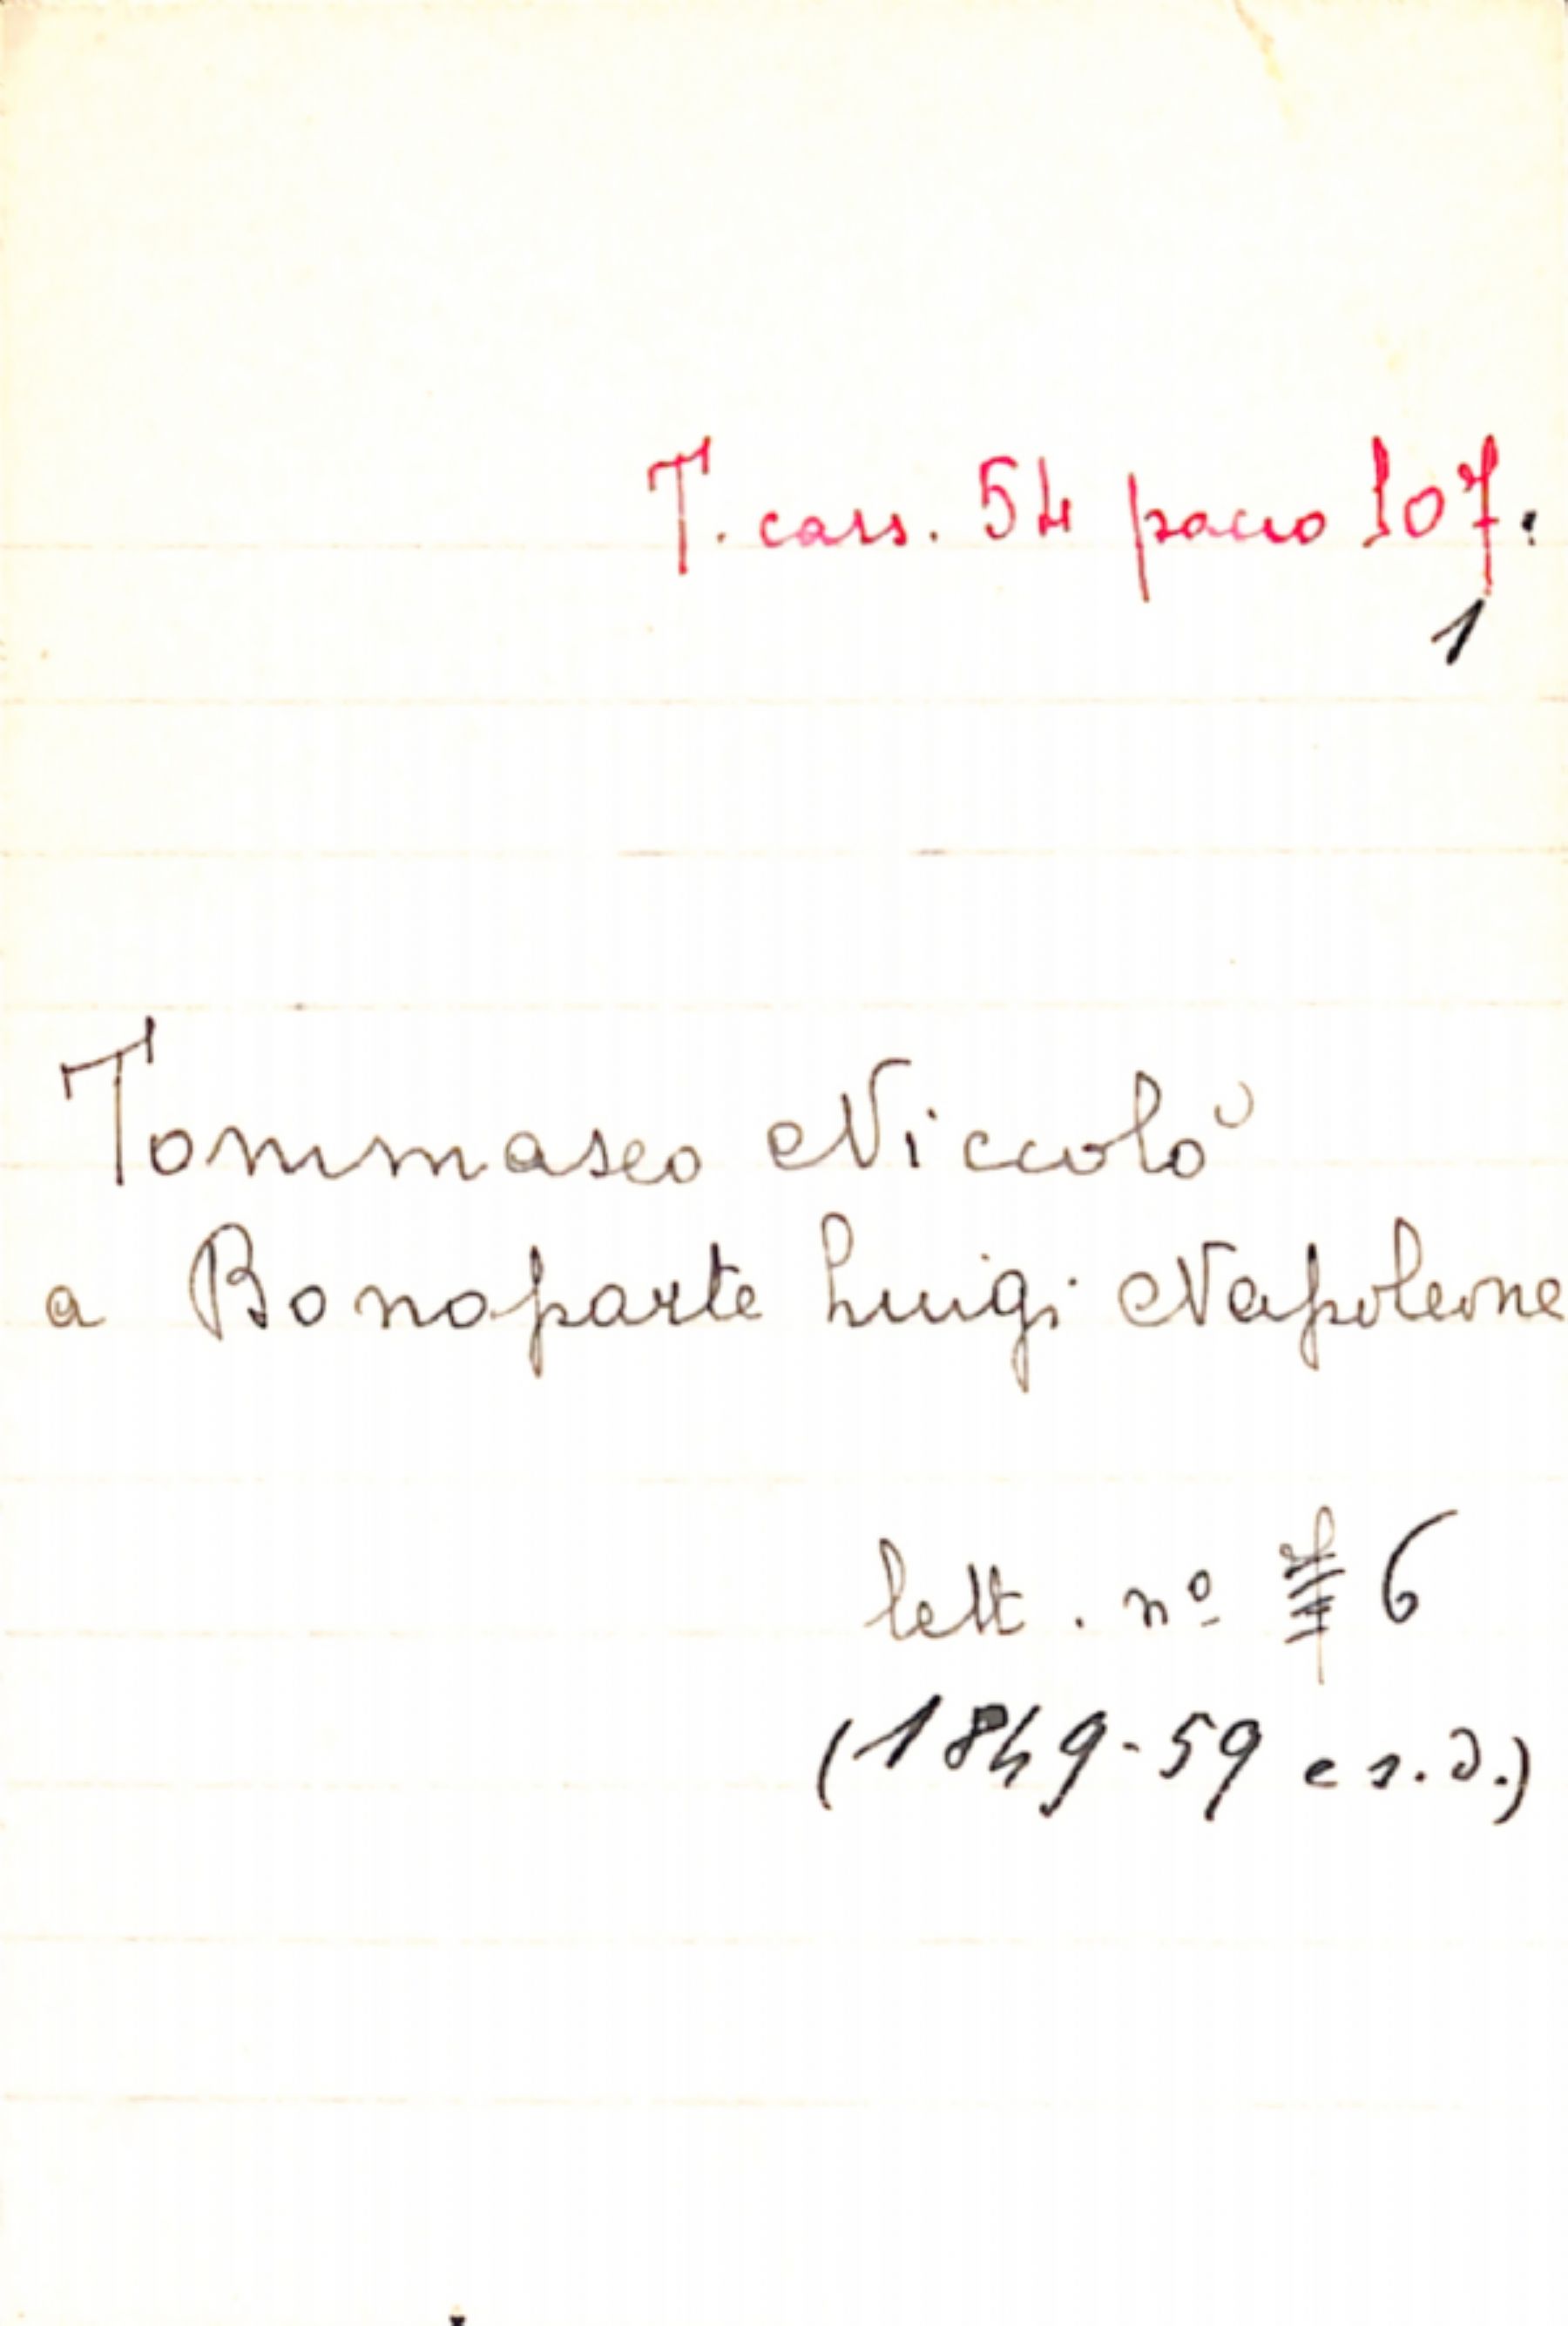 T. cass. 54 pacco 107.
1
Tommaseo Niccolò
a Bonaparte Luigi Napoleone
lett. nº 7 6
(1849-59 e s.d.)